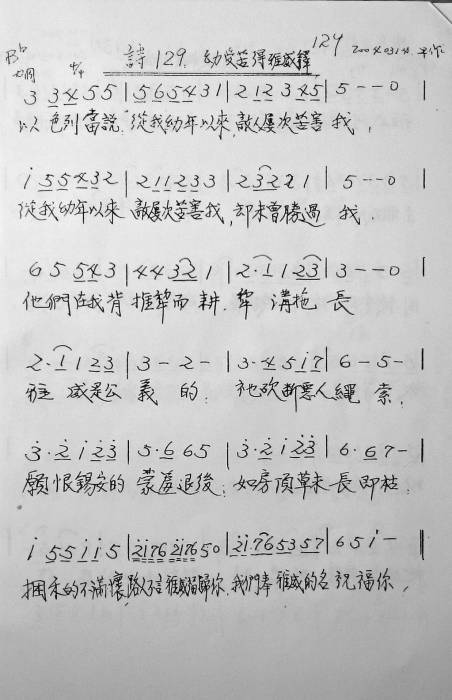 129
詩129. 幼受苦得雅威釋
Bb 4/4
3 34 55 | 5654 31 | 212 345 | 5 - - 0 |
以色列當說:從我幼年以來,敵人屢次苦害我,
i 55432 | 211233 | 23221 | 5 - - 0 |
從我幼年以來 敵屢次苦害我,却未曾勝過我.
65 543 | 44321 | 2·1123 | 3 - - 0 |
他們在我背推犂而耕.犂溝拖長
2·1123 | 3 - 2 - | 3·4517 | 6 - 5 - |
雅威是公義的:祂砍斷惡人繩索.
3·2123 | 5·665 | 3·2123 | 6·67 - |
願恨錫安的蒙羞退後:如房頂草未長即枯:
i 55ii5 | 2i762i7650 | 2i765357 | 65i - ‖
捆禾的不滿懷,路人不言雅威福歸你.我們奉雅威的名祝福你,